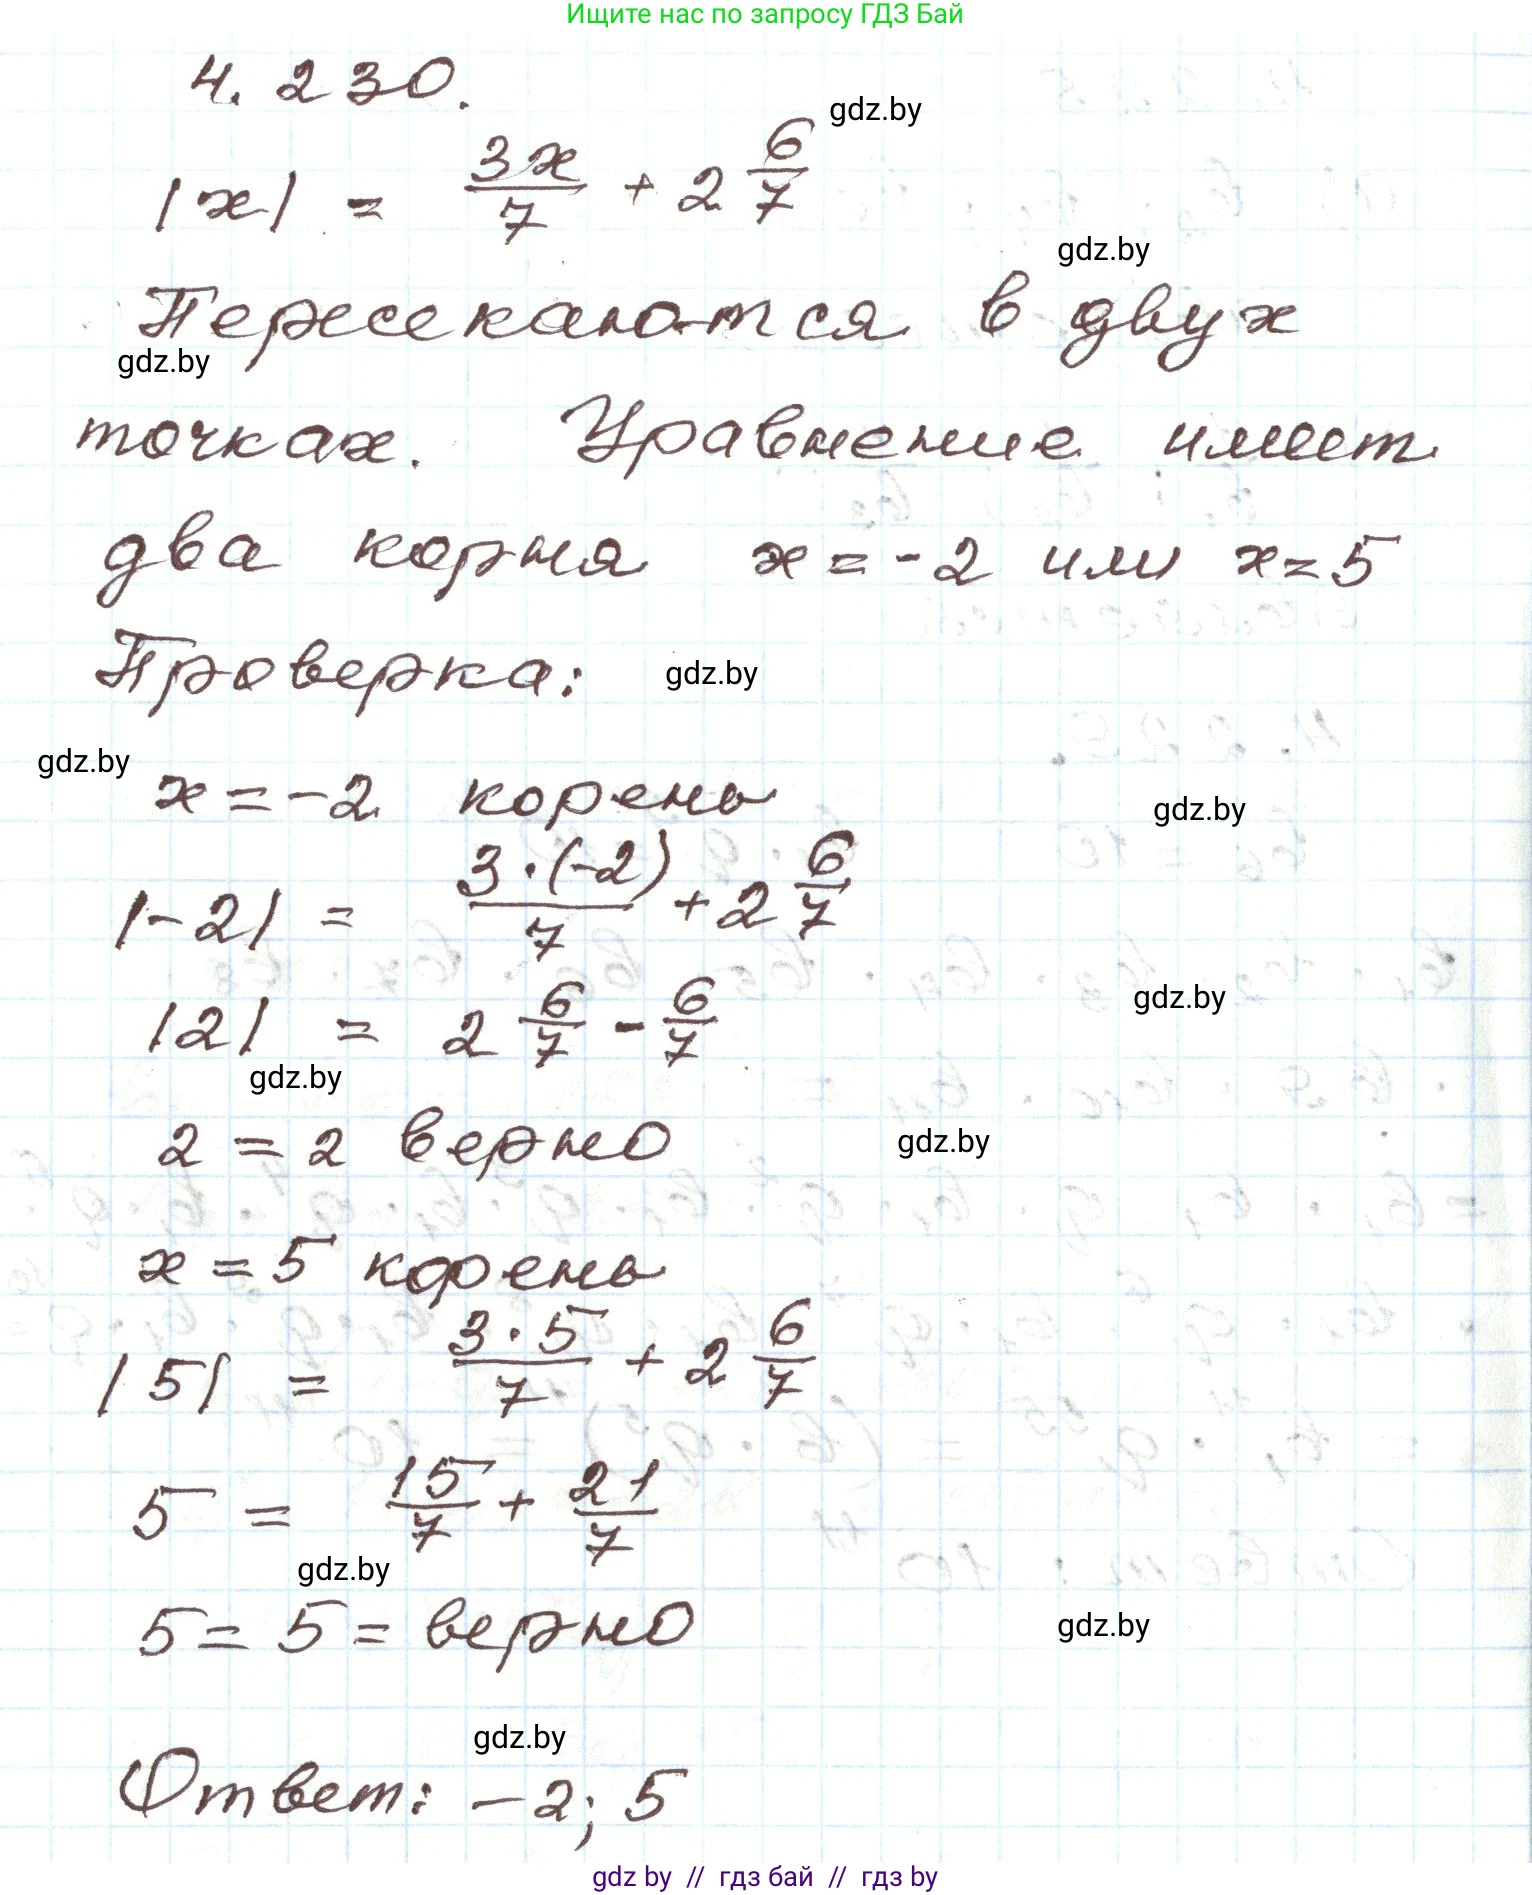 Ищите нас по запросу ГДЗ Бай
4.230.
gdz.by
|x| = 3x/7 + 2 6/7
gdz.by
Пересекаются в двух
gdz.by
точках. Уравнение имеет
два корня x = -2 или x = 5
Проверка:
gdz.by
gdz.by
x = -2 корень
gdz.by
|-2| = 3·(-2)/7 + 2 6/7
gdz.by
|2| = 2 6/7 - 6/7
gdz.by
2 = 2 верно
gdz.by
x = 5 корень
|5| = 3·5/7 + 2 6/7
5 = 15/7 + 21/7
gdz.by
5 = 5 = верно
gdz.by
gdz.by
Ответ: -2; 5
gdz by // гдз бай // гдз by